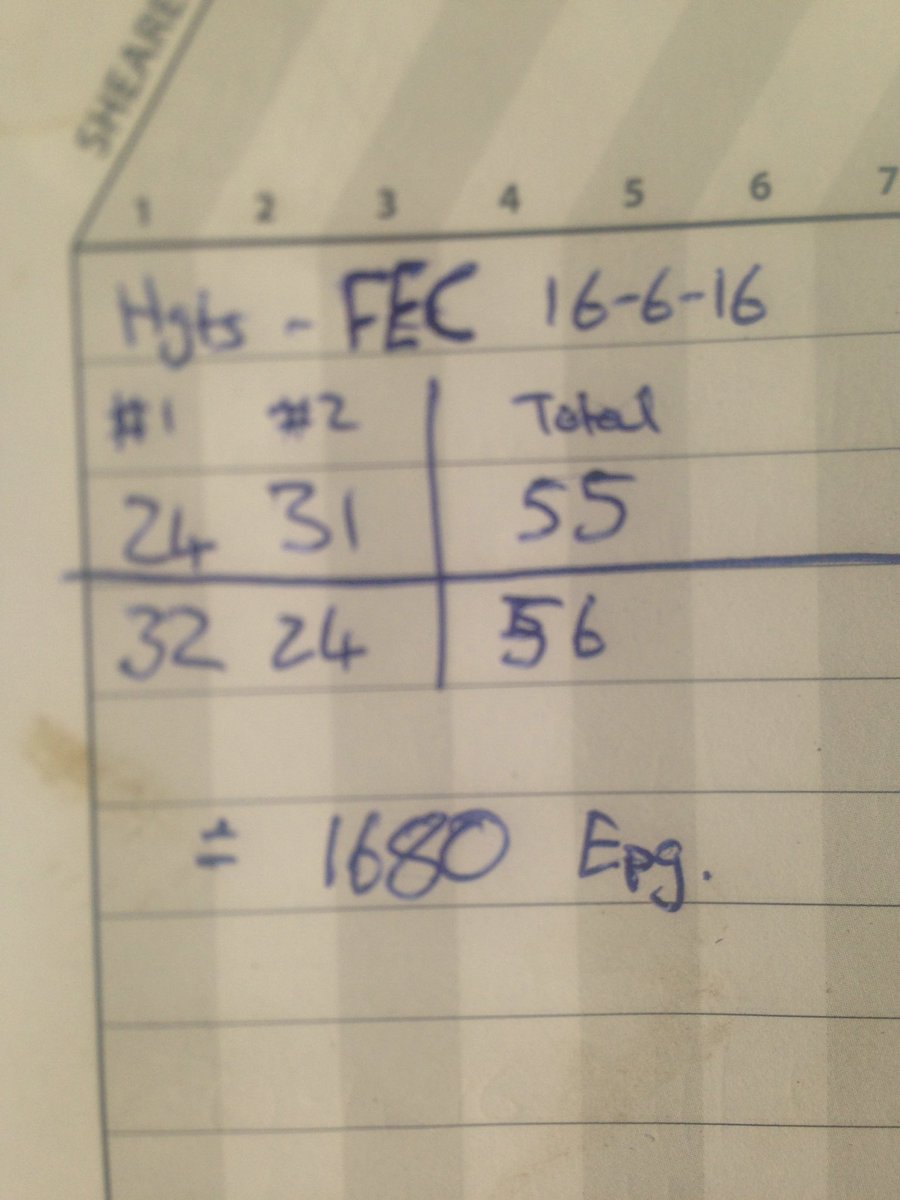 SHEARE
1 2 3 4 5 6 7
Hgts - FEC 16-6-16
#1 #2 Total
24 31 55
32 24 56
≐ 1680 Epg.